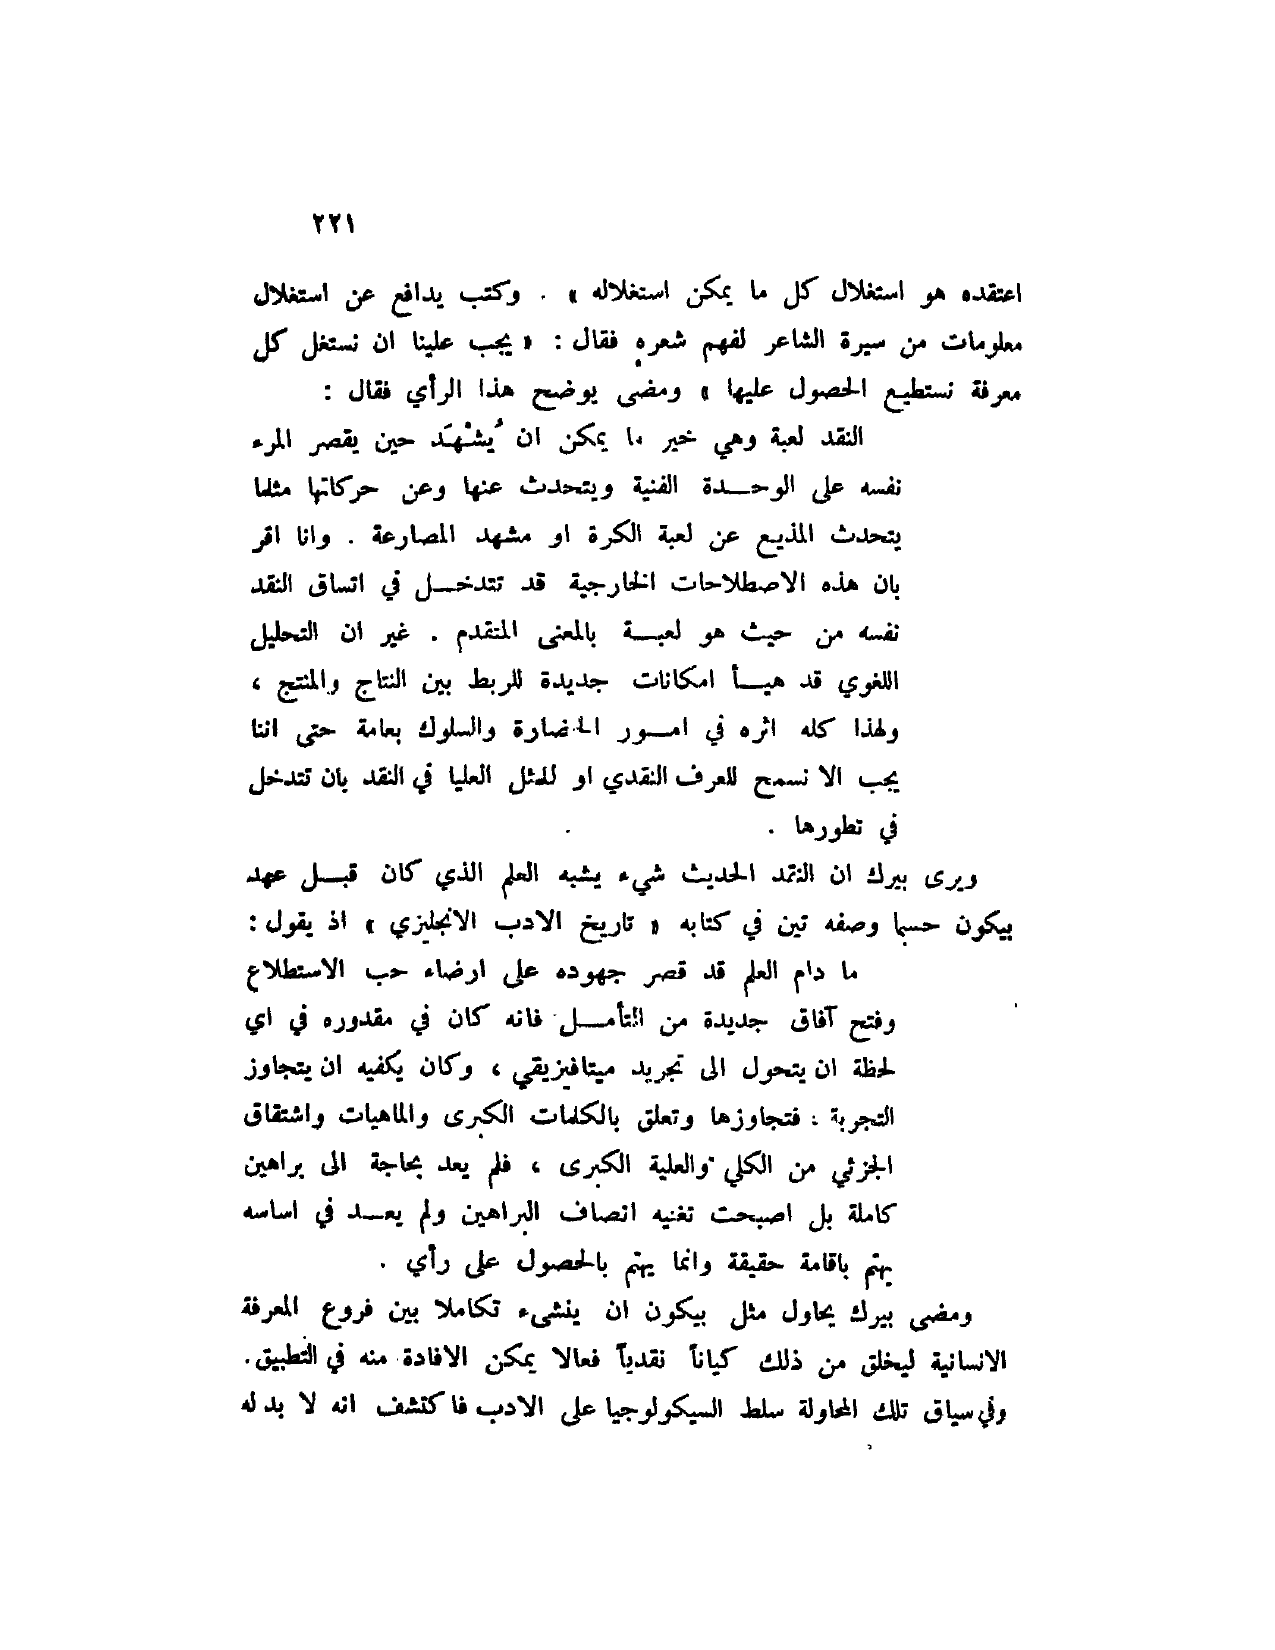 ٢٢١
اعتقده هو استغلال كل ما يمكن استغلاله » . وكتب يدافع عن استغلال
معلومات من سيرة الشاعر لفهم شعره فقال : « يجب علينا ان نستغل كل
معرفة نستطيع الحصول عليها » ومضى يوضح هذا الرأي فقال :
النقد لعبة وهي خير ما يمكن ان يُشْهَد حين يقصر المرء
نفسه على الوحدة الفنية ويتحدث عنها وعن حركاتها مثلما
يتحدث المذيع عن لعبة الكرة او مشهد المصارعة . وانا اقر
بان هذه الاصطلاحات الخارجية قد تتدخل في اتساق النقد
نفسه من حيث هو لعبة بالمعنى المتقدم . غير ان التحليل
اللغوي قد هيأ امكانات جديدة للربط بين النتاج والمنتج ،
ولهذا كله اثره في امور الحضارة والسلوك بعامة حتى اننا
يجب الا نسمح للعرف النقدي او للمثل العليا في النقد بان تتدخل
في تطورها .
ويرى بيرك ان النقد الحديث شيء يشبه العلم الذي كان قبل عهد
بيكون حسبما وصفه تين في كتابه « تاريخ الادب الانجليزي » اذ يقول :
ما دام العلم قد قصر جهوده على ارضاء حب الاستطلاع
وفتح آفاق جديدة من التأمل فانه كان في مقدوره في اي
لحظة ان يتحول الى تجريد ميتافيزيقي ، وكان يكفيه ان يتجاوز
التجربة : فتجاوزها وتعلق بالكلمات الكبرى والماهيات واشتقاق
الجزئي من الكلي والعلية الكبرى ، فلم يعد بحاجة الى براهين
كاملة بل اصبحت تغنيه انصاف البراهين ولم يعد في اساسه
يهتم باقامة حقيقة وانما يهتم بالحصول على رأي .
ومضى بيرك يحاول مثل بيكون ان ينشىء تكاملا بين فروع المعرفة
الانسانية ليخلق من ذلك كياناً نقدياً فعالا يمكن الافادة منه في التطبيق.
وفي سياق تلك المحاولة سلط السيكولوجيا على الادب فاكتشف انه لا بد له